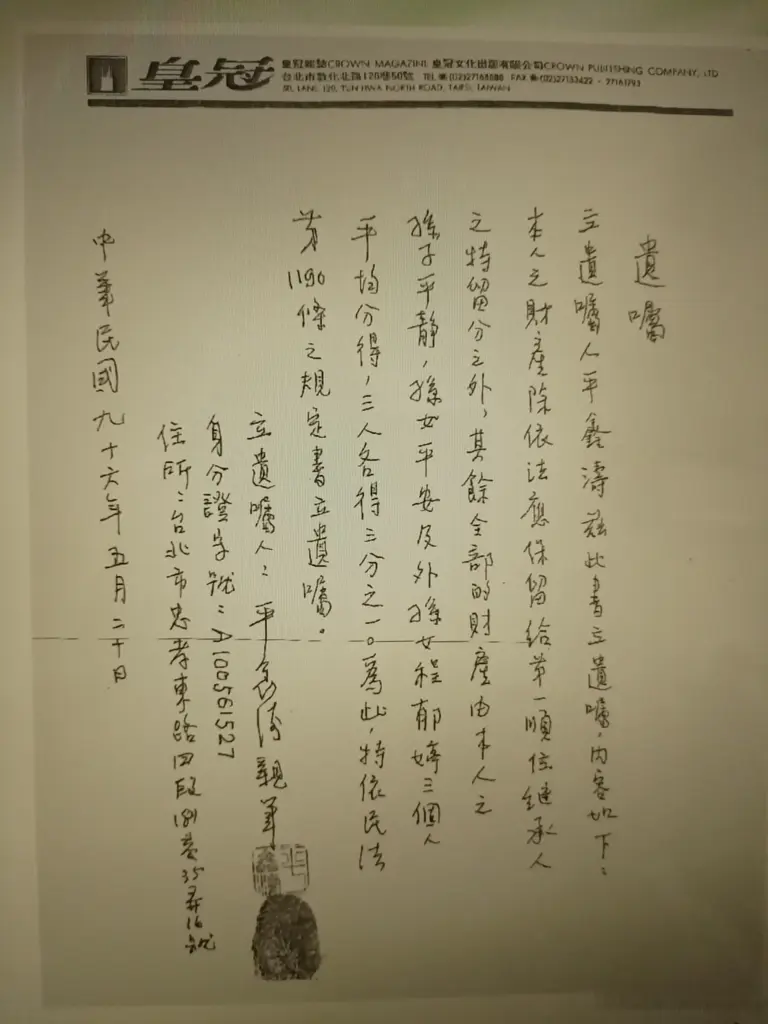 皇冠 皇冠雜誌CROWN MAGAZINE 皇冠文化出版有限公司CROWN PUBLISHING COMPANY, LTD
台北市敦化北路120巷50號 TEL (02)27168888 FAX (02)27133422・27161793
50, LANE 120, TUN HWA NORTH ROAD, TAIPEI, TAIWAN
遺囑
立遺囑人平鑫濤茲此書立遺囑，內容如下：
本人之財產除依法應保留給第一順位繼承人
之特留分之外，其餘全部的財產由本人之
孫子平靜，孫女平安及外孫女程郁婷三個人
平均分得，三人各得三分之一。為此，特依民法
第1190條之規定書立遺囑。
立遺囑人：平鑫濤親筆
身分證字號：A100561527
住所：台北市忠孝東路四段181巷35弄16號
中華民國九十六年五月二十日